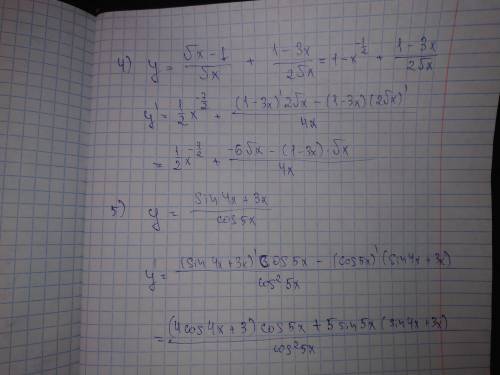 4) y = (√x - 1)/√x + (1-3x)/(2√x) = 1 - x^(-1/2) + (1-3x)/(2√x)
y' = 1/2 x^(-3/2) + ((1-3x)' 2√x - (1-3x)(2√x)')/(4x)
= 1/2 x^(-3/2) + (-6√x - (1-3x)·√x)/(4x)
5) y = (sin4x + 3x)/(cos5x)
y' = ((sin4x + 3x)' cos5x - (cos5x)' (sin4x + 3x))/(cos²5x)
= ((4cos4x + 3) cos5x + 5sin5x (sin4x + 3x))/(cos²5x)